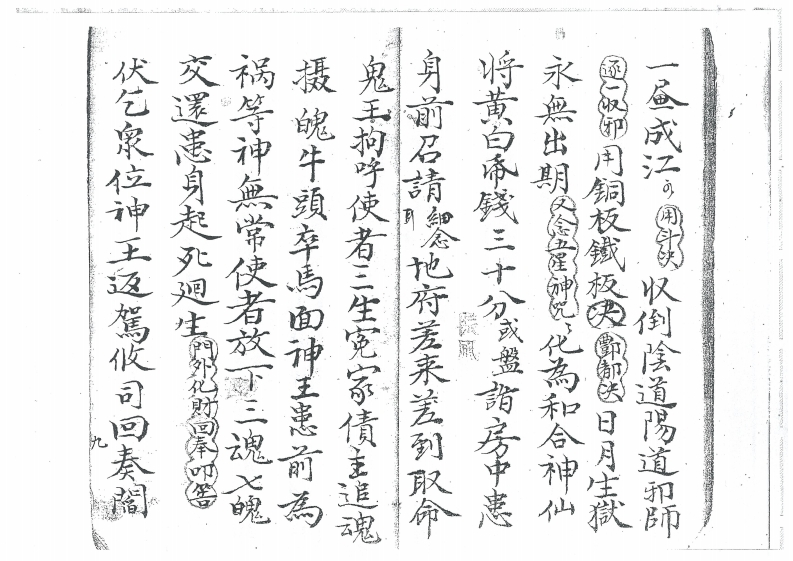 一盆成江 用斗决 收倒陰道陽道邪師
逐一收邪 用銅板鐵板决 酆都决 日月生獄
永無出期 又念五星神咒 化為和合神仙
将黄白帋錢三十分 或盤 詣房中患
身前召請 細念 地府差来差到取命
鬼王拘呼使者三生冤家債主追魂
摄魄牛頭卒馬面神王患前為
祸等神無常使者放下三魂七魄
交還患身起死廻生 門外化財回奉叩答
伏乞衆位神王返駕攸司回奏閻
九